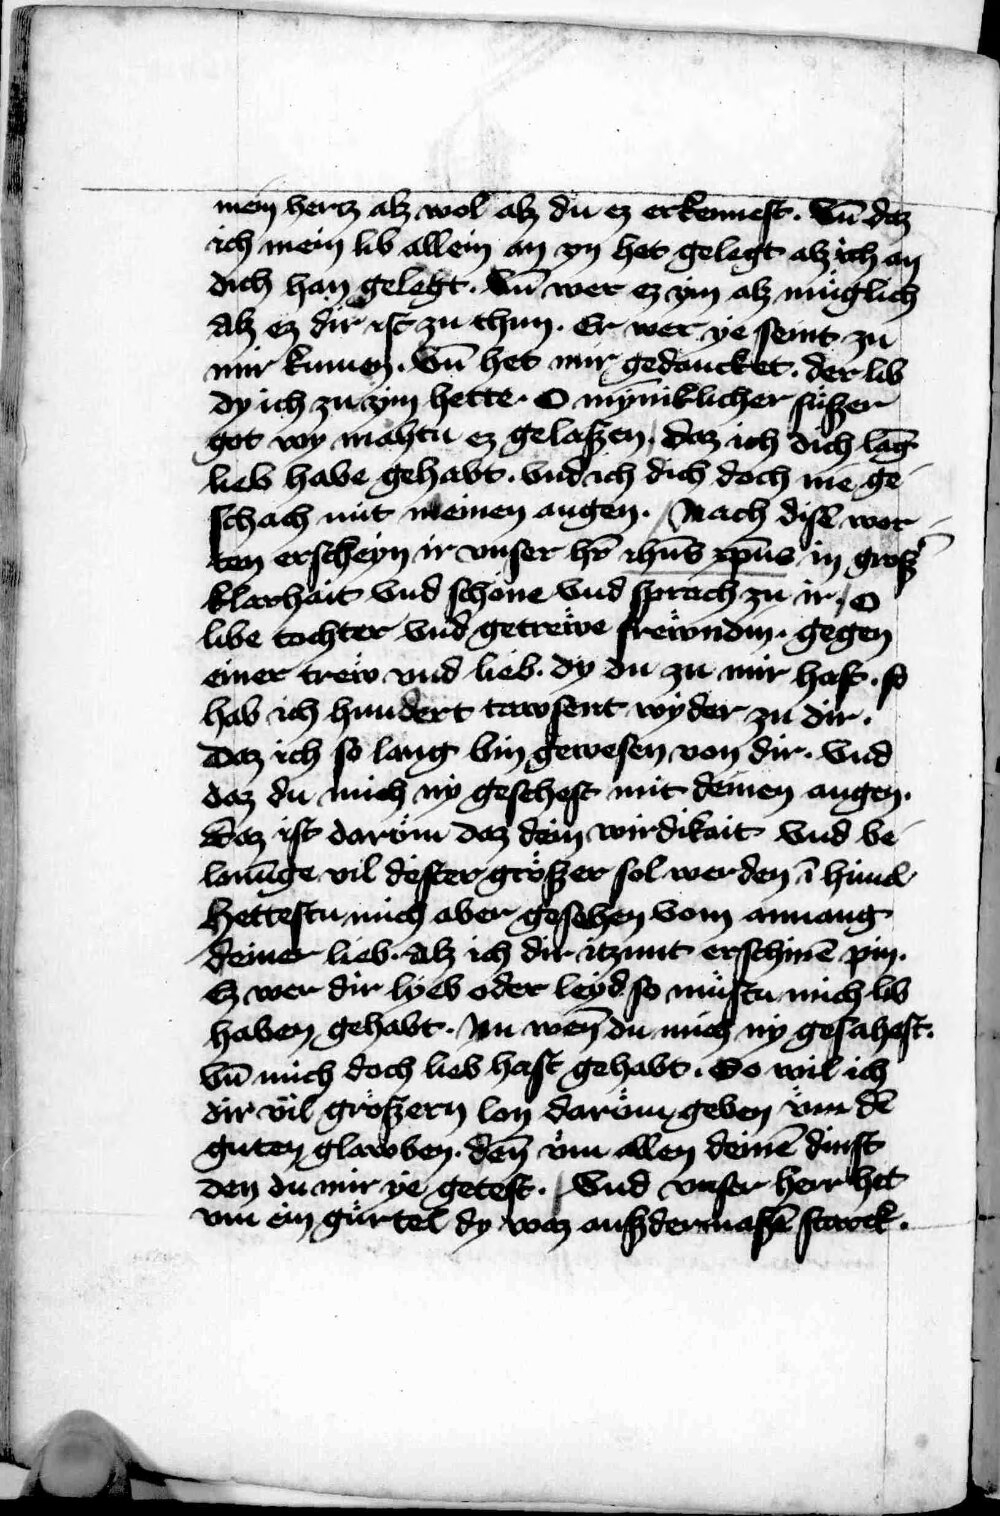 mein hercz alz wol alz du ez erkennest. Vn̄ daz
ich mein lib allein an yn het gelegt alz ich an
dich han gelegt. Vn̄ wer ez ym alz müglich
Alz ez dir ist zu thun. Er wer ye seint zu
mir kumen. Vn̄ het mir gedancket. der lib
dy ich zu zym hette. O mȳniklicher süßer
got wy mahtu ez gelaßen. daz ich dich lāg
lieb have gehabt. vnd ich dich doch nie ge
schach mit meinen augen. Nach disē wor
ten erscheyn ir vnser hr̄ ihūs xpūs in groß̾
klarhait vnd schöne vnd sprach zu ir. O
libe tochter vnd getrewe frewndin. gegen
einer trew vnd lieb. dy du zu mir hast. so
hab ich hundert tawsent wyder zu dir.
Daz ich so lang bin gewesen von dir. vnd
daz du mich ny gesehest mit deinen augen.
Daz ist daröm daz dein wirdikait vnd be
lanūge vil dester größer sol werden ī himel
Hettestu mich aber gesehen vom anuang
deiner lieb. Alz ich dir itzunt erschinē pin.
Ez wer dir lyeb oder leyd so müstu mich lib
haben gehabt. Nu wen̄ du mich ny gesahest.
Vn̄ mich doch lieb hast gehabt. So wil ich
dir vil größern lon daröm geben vm dē
guten glawben. den̄ vm allen deinē dinst
den du mir ye getest. Vnd vnser herr het
vm ein gürtel dy waz außdermaßē starck.